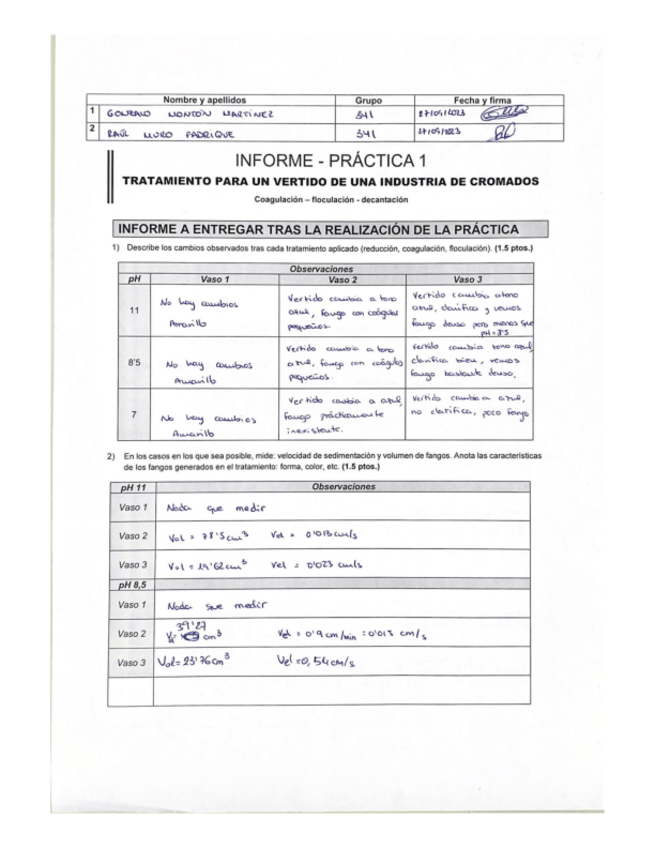 Nombre y apellidos Grupo Fecha y firma
1 GONZALO MONTÓN MARTÍNEZ 341 27/09/2023
2 RAÚL MURO PADRIQUE 341 27/09/2023
INFORME - PRÁCTICA 1
TRATAMIENTO PARA UN VERTIDO DE UNA INDUSTRIA DE CROMADOS
Coagulación – floculación - decantación
INFORME A ENTREGAR TRAS LA REALIZACIÓN DE LA PRÁCTICA
1) Describe los cambios observados tras cada tratamiento aplicado (reducción, coagulación, floculación). (1.5 ptos.)
Observaciones
pH Vaso 1 Vaso 2 Vaso 3
11
No hay cambios
Amarillo
Vertido cambia a tono
azul, fango con coágulos
pequeños.
Vertido cambia a tono
azul, clarifica y vemos
fango denso pero menos que
pH=8'5
8'5
No hay cambios
Amarillo
Vertido cambia a tono
azul, fango con coágulos
pequeños.
Vertido cambia tono azul,
clarifica bien, vemos
fango bastante denso.
7
No hay cambios
Amarillo
Vertido cambia a azul,
fango prácticamente
inexistente.
Vertido cambia a azul,
no clarifica, poco fango
2) En los casos en los que sea posible, mide: velocidad de sedimentación y volumen de fangos. Anota las características
de los fangos generados en el tratamiento: forma, color, etc. (1.5 ptos.)
pH 11 Observaciones
Vaso 1 Nada que medir
Vaso 2 Vol = 78'5 cm³ Vel = 0'013 cm/s
Vaso 3 Vol = 19'62 cm³ Vel = 0'023 cm/s
pH 8,5
Vaso 1 Nada que medir
39'27
Vaso 2 V= cm³ Vel = 0'9 cm/min = 0'015 cm/s
Vaso 3 Vol = 23'76 cm³ Vel = 0,54 cm/s